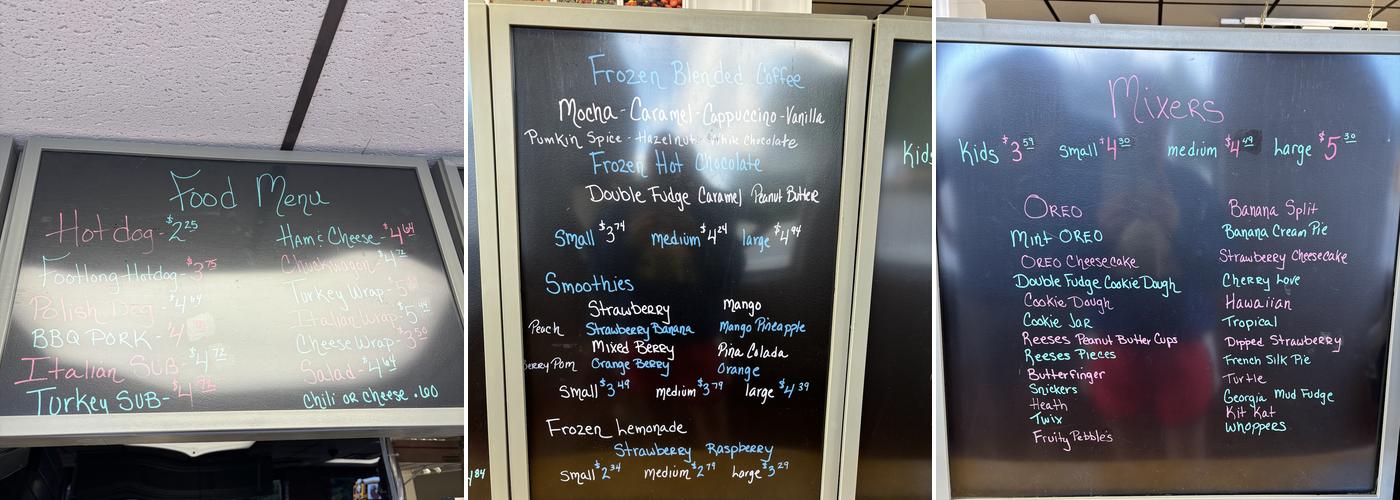 Food Menu
Hot dog - $2.25
Footlong Hotdog - $3.75
Polish Dog - $4.64
BBQ PORK - $4
Italian SUB - $4.72
Turkey SUB - $4.72
Ham & Cheese - $4.64
$4.72
Turkey Wrap -
Italian Wrap - $5.44
Cheese Wrap - $3.50
Salad - $4.64
Chili or Cheese .60
Frozen Blended Coffee
Mocha - Caramel - Cappuccino - Vanilla
Pumkin Spice - Hazelnut - White Chocolate
Frozen Hot Chocolate
Double Fudge Caramel Peanut Butter
Small $3.74 medium $4.24 large $4.94
Smoothies
Strawberry Mango
Peach Strawberry Banana Mango Pineapple
Mixed Berry Pina Colada
erry Pom Orange Berry Orange
Small $3.49 medium $3.79 large $4.39
Frozen Lemonade
Strawberry Raspberry
Small $2.34 medium $2.79 Large $3.29
84
Kids
Mixers
Kids $3.59 Small $4.30 medium $4.49 Large $5.30
OREO
Mint OREO
OREO Cheesecake
Double Fudge Cookie Dough
Cookie Dough
Cookie Jar
Reeses Peanut Butter Cups
Reeses Pieces
Butterfinger
Snickers
Heath
Twix
Fruity Pebble's
Banana Split
Banana Cream Pie
Strawberry Cheesecake
Cherry Love
Hawaiian
Tropical
Dipped Strawberry
French Silk Pie
Turtle
Georgia Mud Fudge
Kit Kat
Whoppers